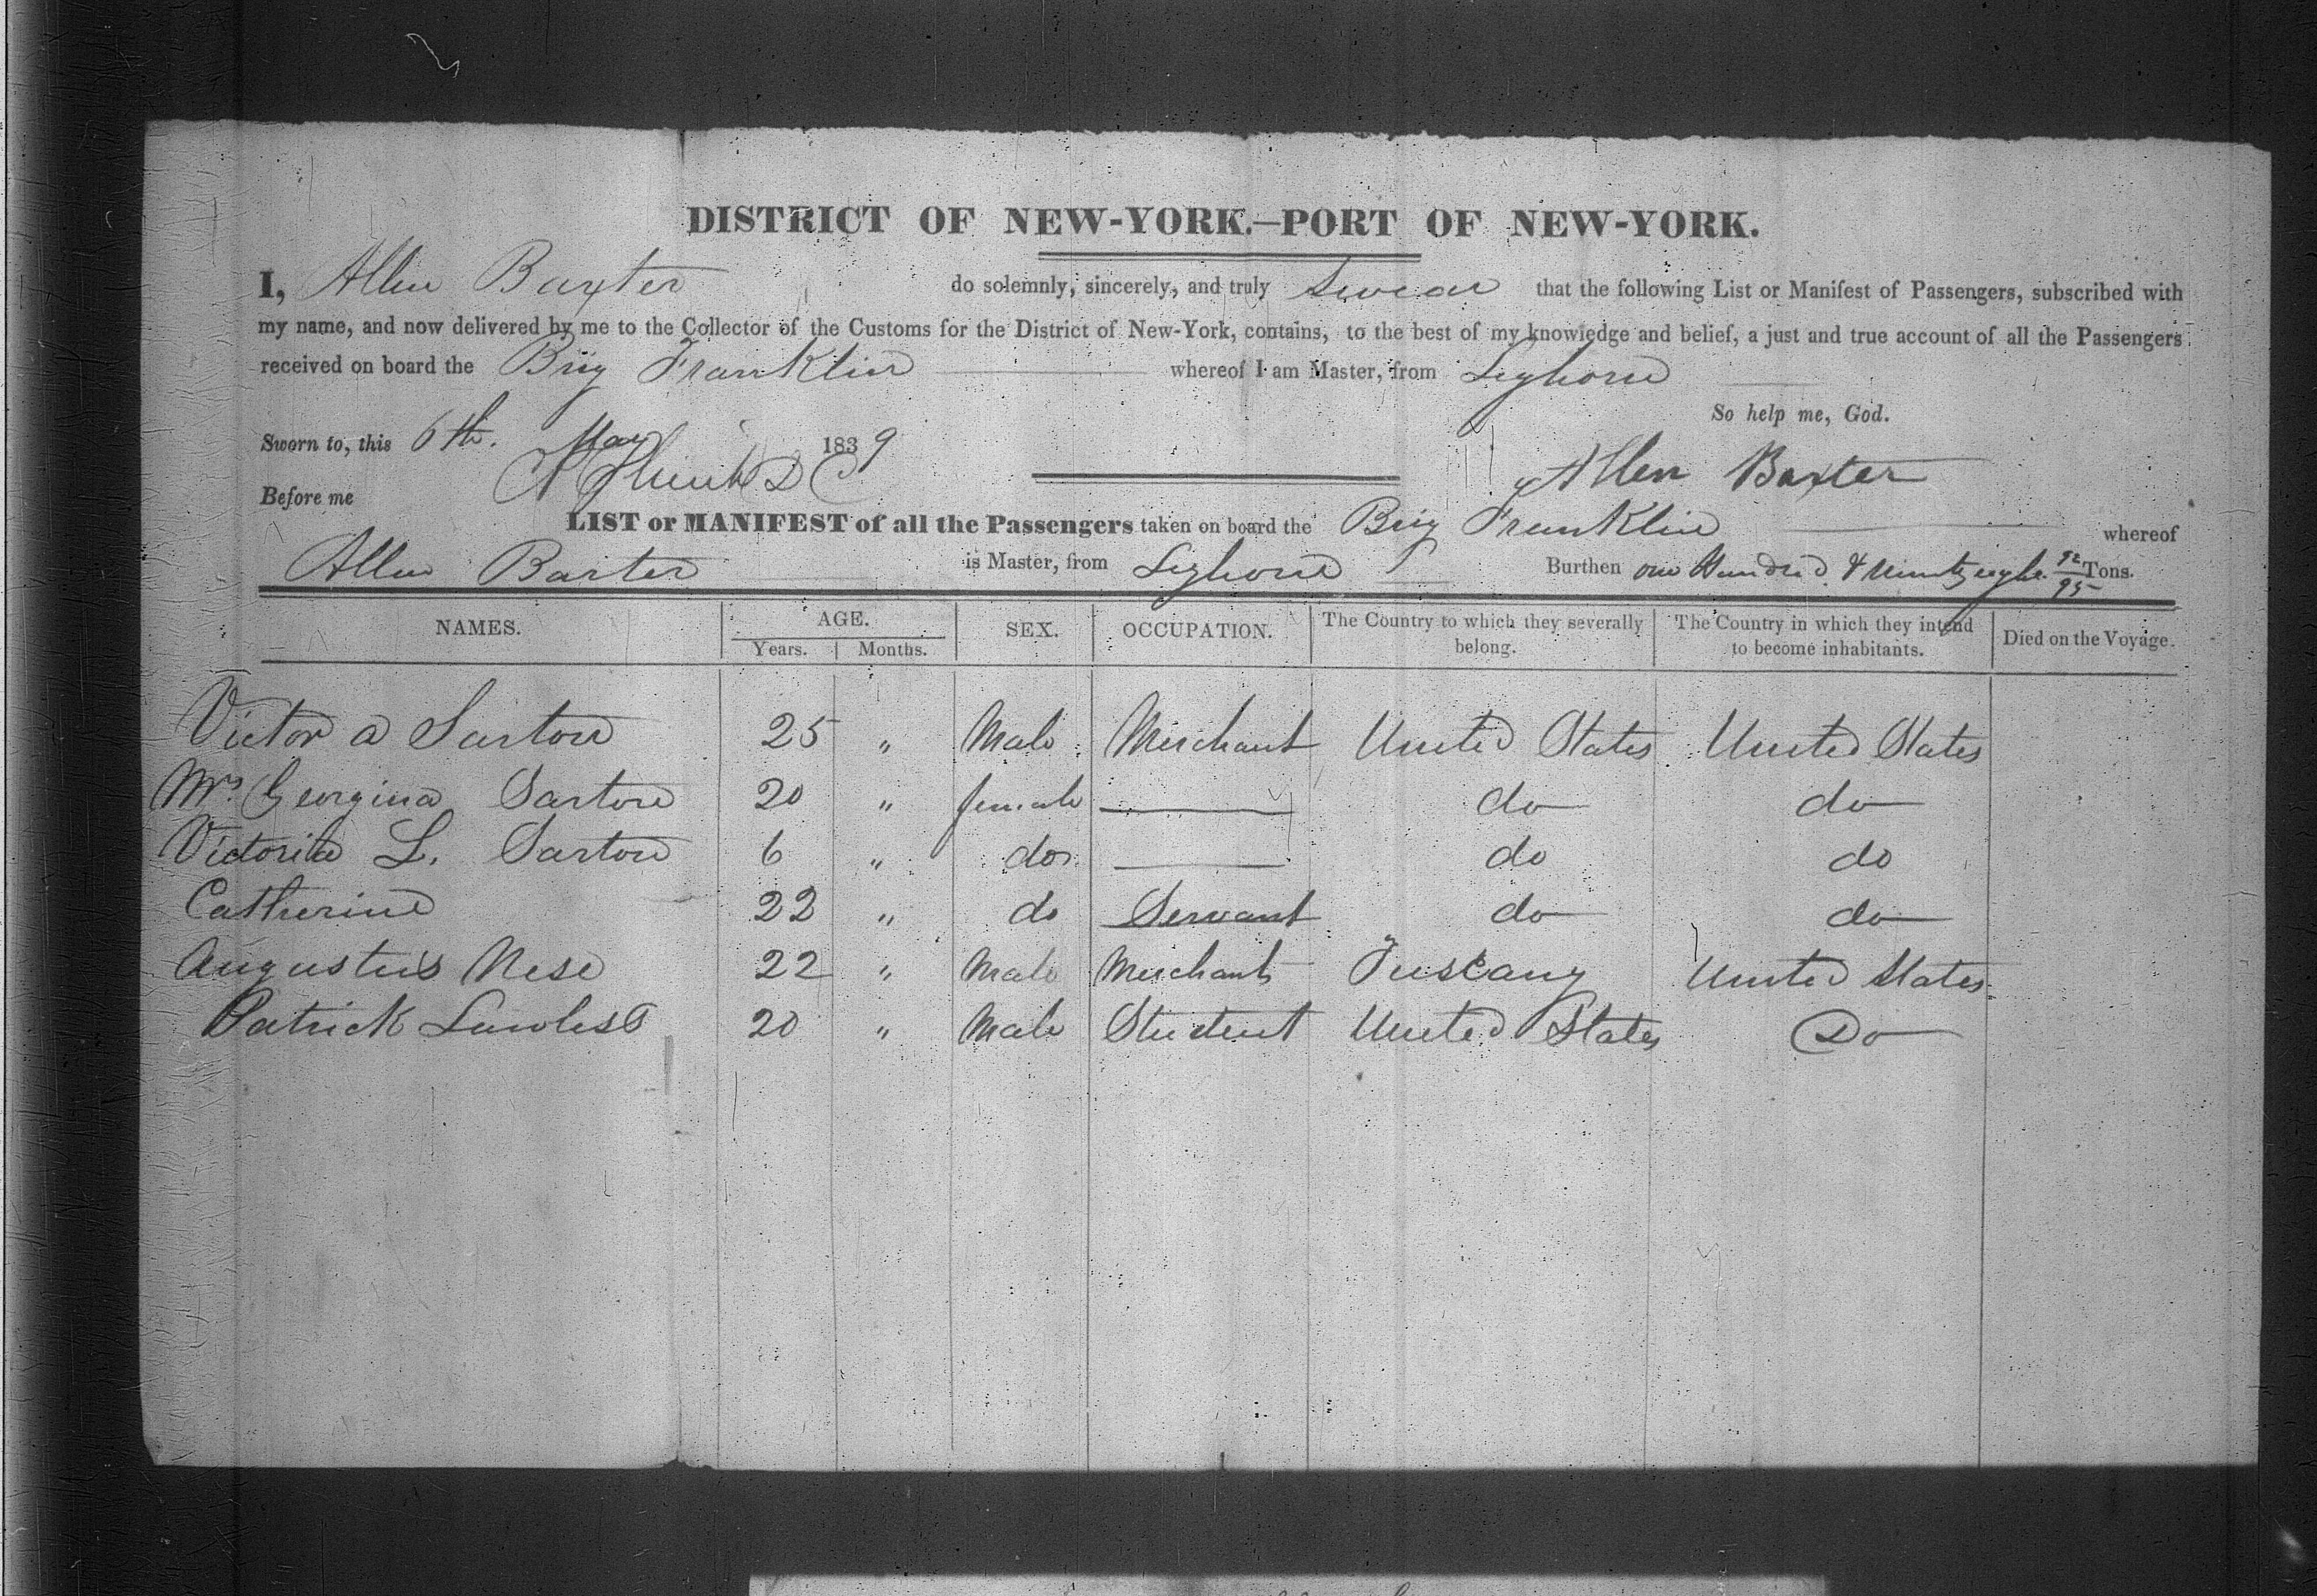 DISTRICT OF NEW-YORK.—PORT OF NEW-YORK.
I, Allen Baxter do solemnly, sincerely, and truly Swear that the following List or Manifest of Passengers, subscribed with
my name, and now delivered by me to the Collector of the Customs for the District of New-York, contains, to the best of my knowledge and belief, a just and true account of all the Passengers
received on board the Brig Franklin whereof I am Master, from Leghorn
So help me, God.
Sworn to, this 6th. May 1839
Allen Baxter
Before me
LIST or MANIFEST of all the Passengers taken on board the Brig Franklin whereof
Allen Baxter is Master, from Leghorn Burthen one Hundred & Ninety eight 92/95 Tons.
NAMES. AGE. SEX. OCCUPATION. The Country to which they severally belong. The Country in which they intend to become inhabitants. Died on the Voyage.
Years. Months.
Victor a Sartori 25 " Male Merchant United States United States
Mrs. Georgina Sartori 20 " female — do do
Victoria L. Sartori 6 " do — do do
Catherine 22 " do Servant do do
Augustus Nesi 22 " Male Merchant Tuscany United States
Patrick Lawless 20 " Male Student United States Do